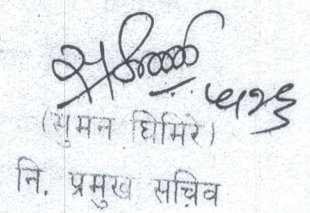 (सुमन घिमिरे)
नि. प्रमुख सचिव